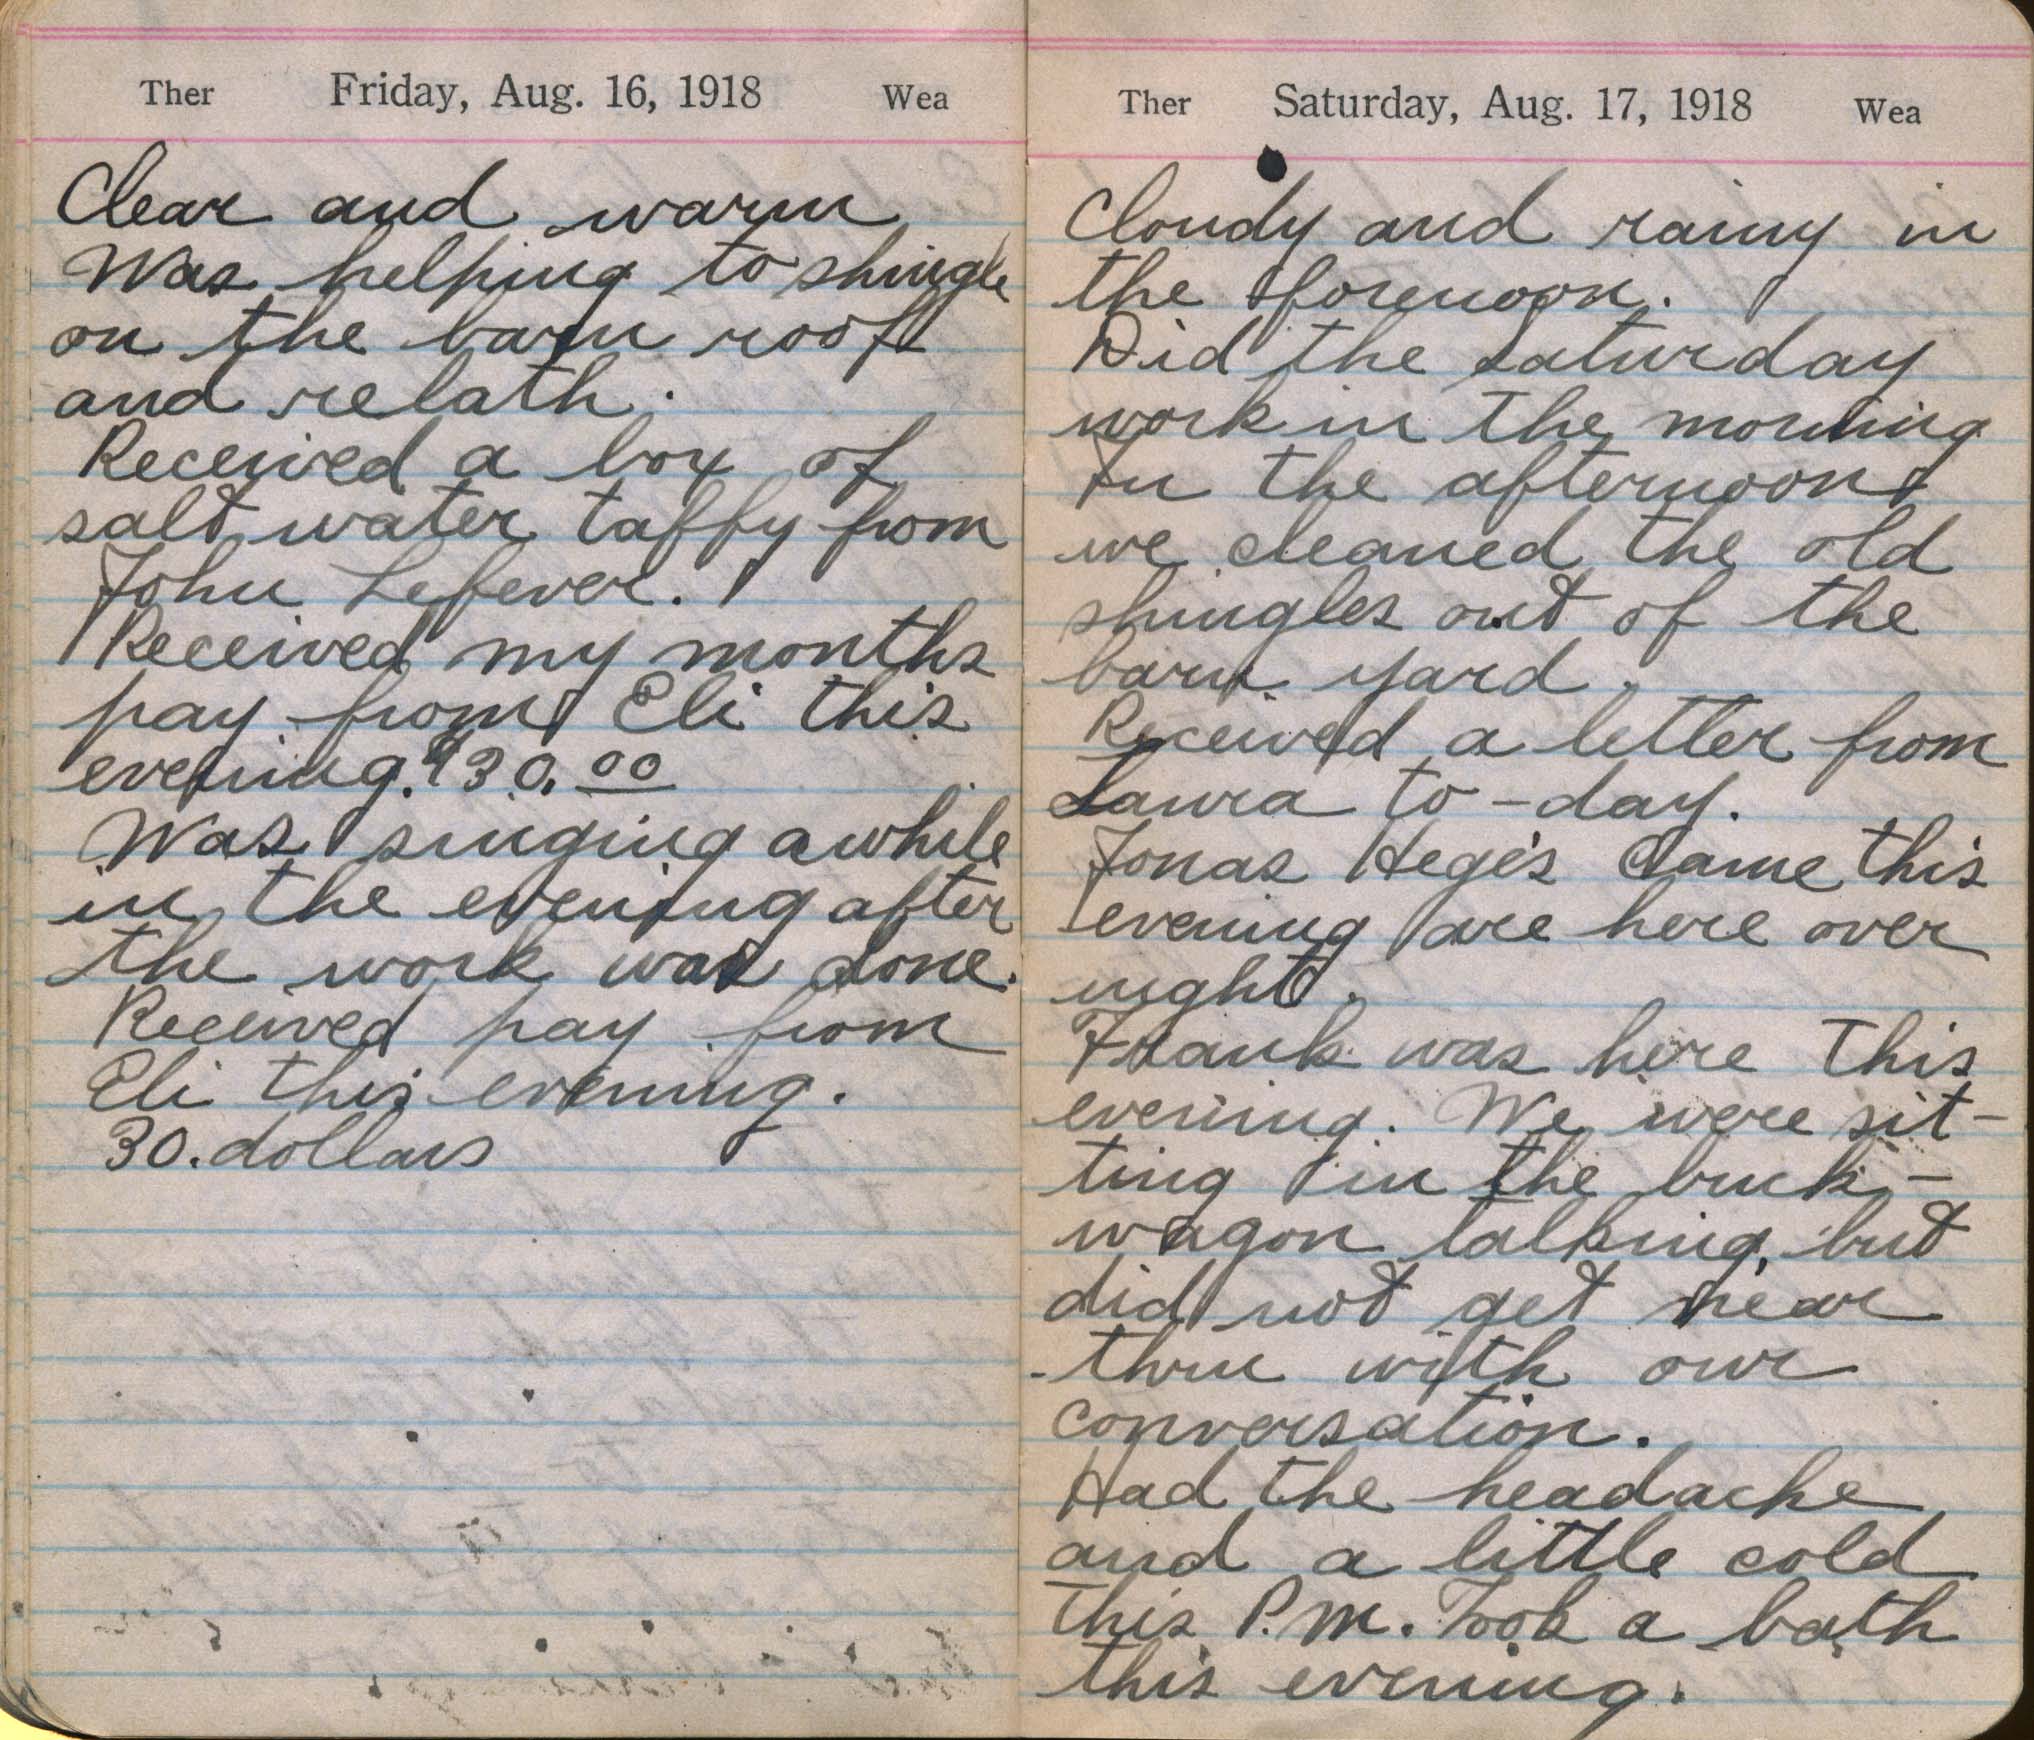 Ther Friday, Aug. 16, 1918 Wea
Clear and warm
Was helping to shingle
on the barn roof
and relath.
Received a box of
salt water taffy from
John Lefever.
Received my months
pay from Eli this
evening. $30.00
Was singing awhile
in the evening after
the work was done.
Received pay from
Eli this evening.
30. dollars
Ther Saturday, Aug. 17, 1918 Wea
Cloudy and rainy in
the forenoon.
Did the saturday
work in the morning
In the afternoon
we cleaned the old
shingles out of the
barn yard.
Received a letter from
Laura to-day.
Jonas Hege's came this
evening are here over
night.
Frank was here this
evening. We were sit-
ting in the buck-
wagon talking, but
did not get near
thru with our
conversation.
Had the headache
and a little cold
this P.M. Took a bath
this evening.